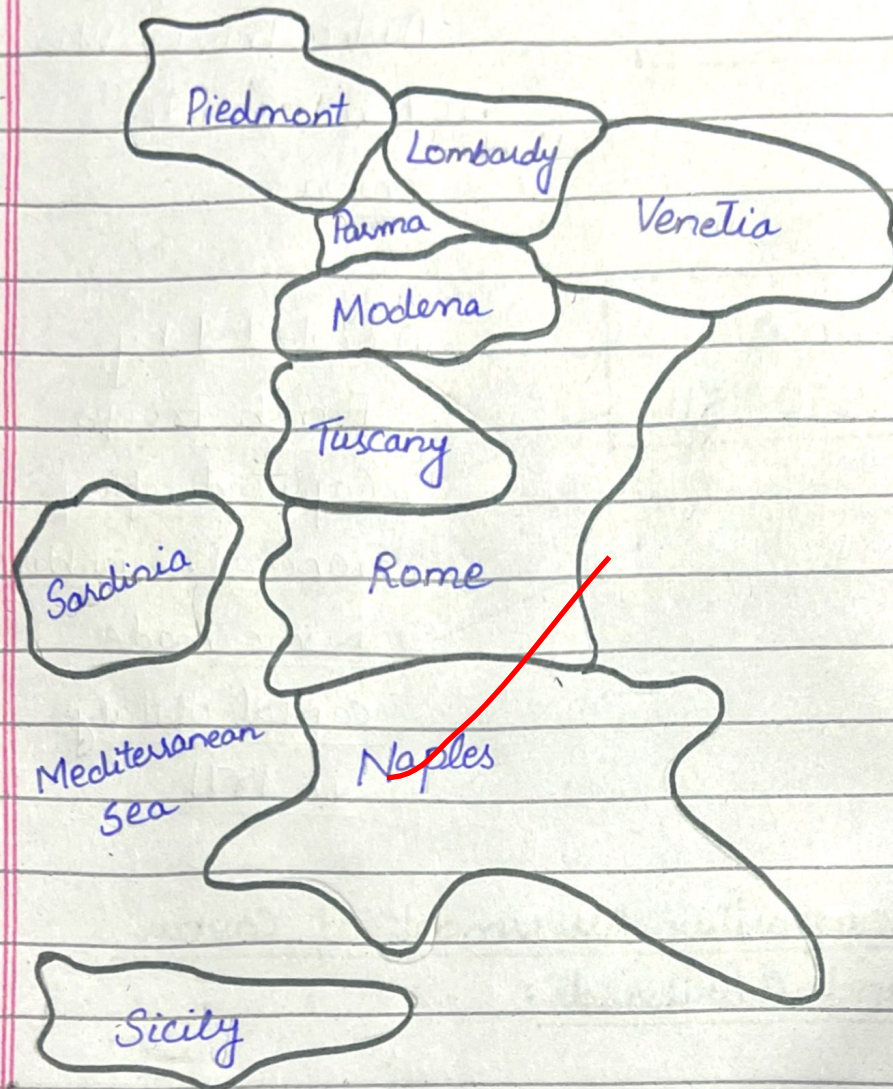 Piedmont
Lombardy
Parma
Venetia
Modena
Tuscany
Sardinia
Rome
Mediterranean
sea
Naples
Sicily